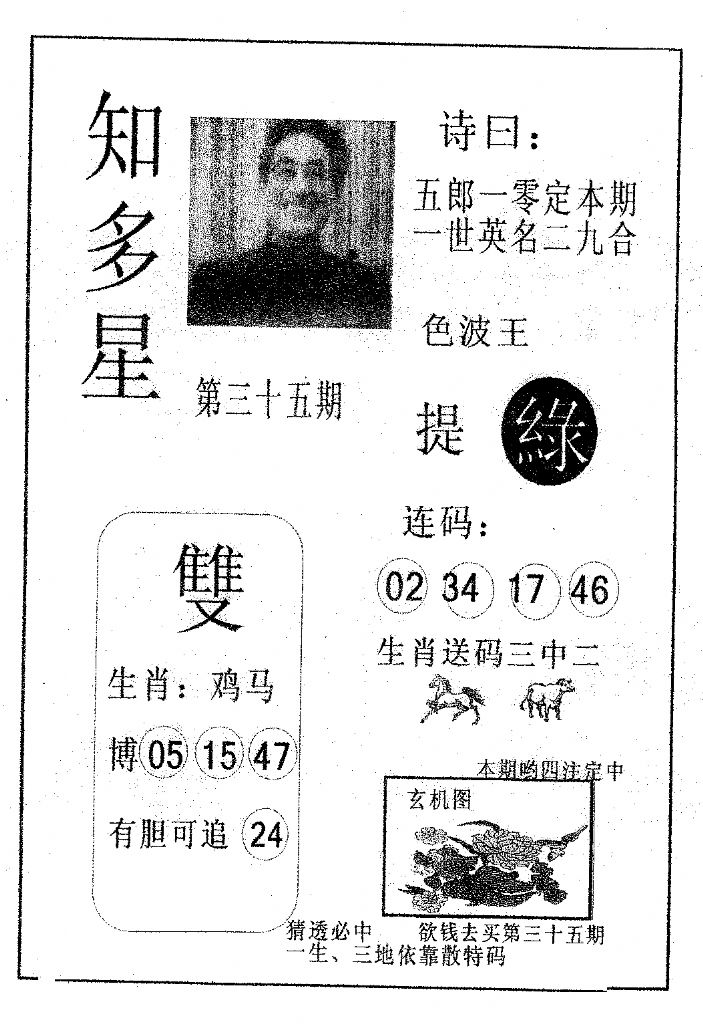 知多星
诗曰：
五郎一零定本期
一世英名二九合
色波王
第三十五期
提 綠
连码：
02 34 17 46
生肖送码三中二
雙
生肖：鸡马
博 05 15 47
有胆可追 24
本期哟四注定中
玄机图
猜透必中 欲钱去买第三十五期
一生、三地依靠散特码